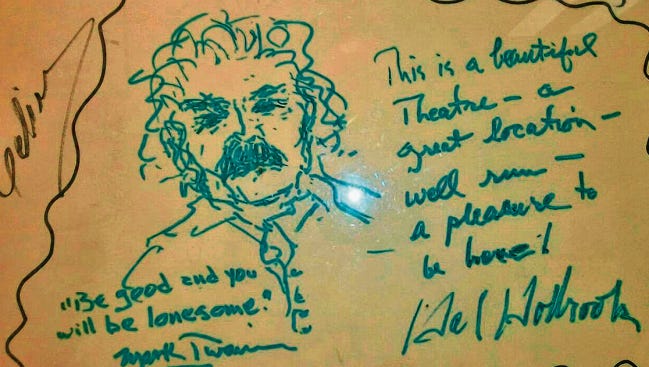 This is a beautiful
Theatre — a
great location —
well run —
— a pleasure to
be here!
Hal Holbrook
"Be good and you
will be lonesome."
Mark Twain